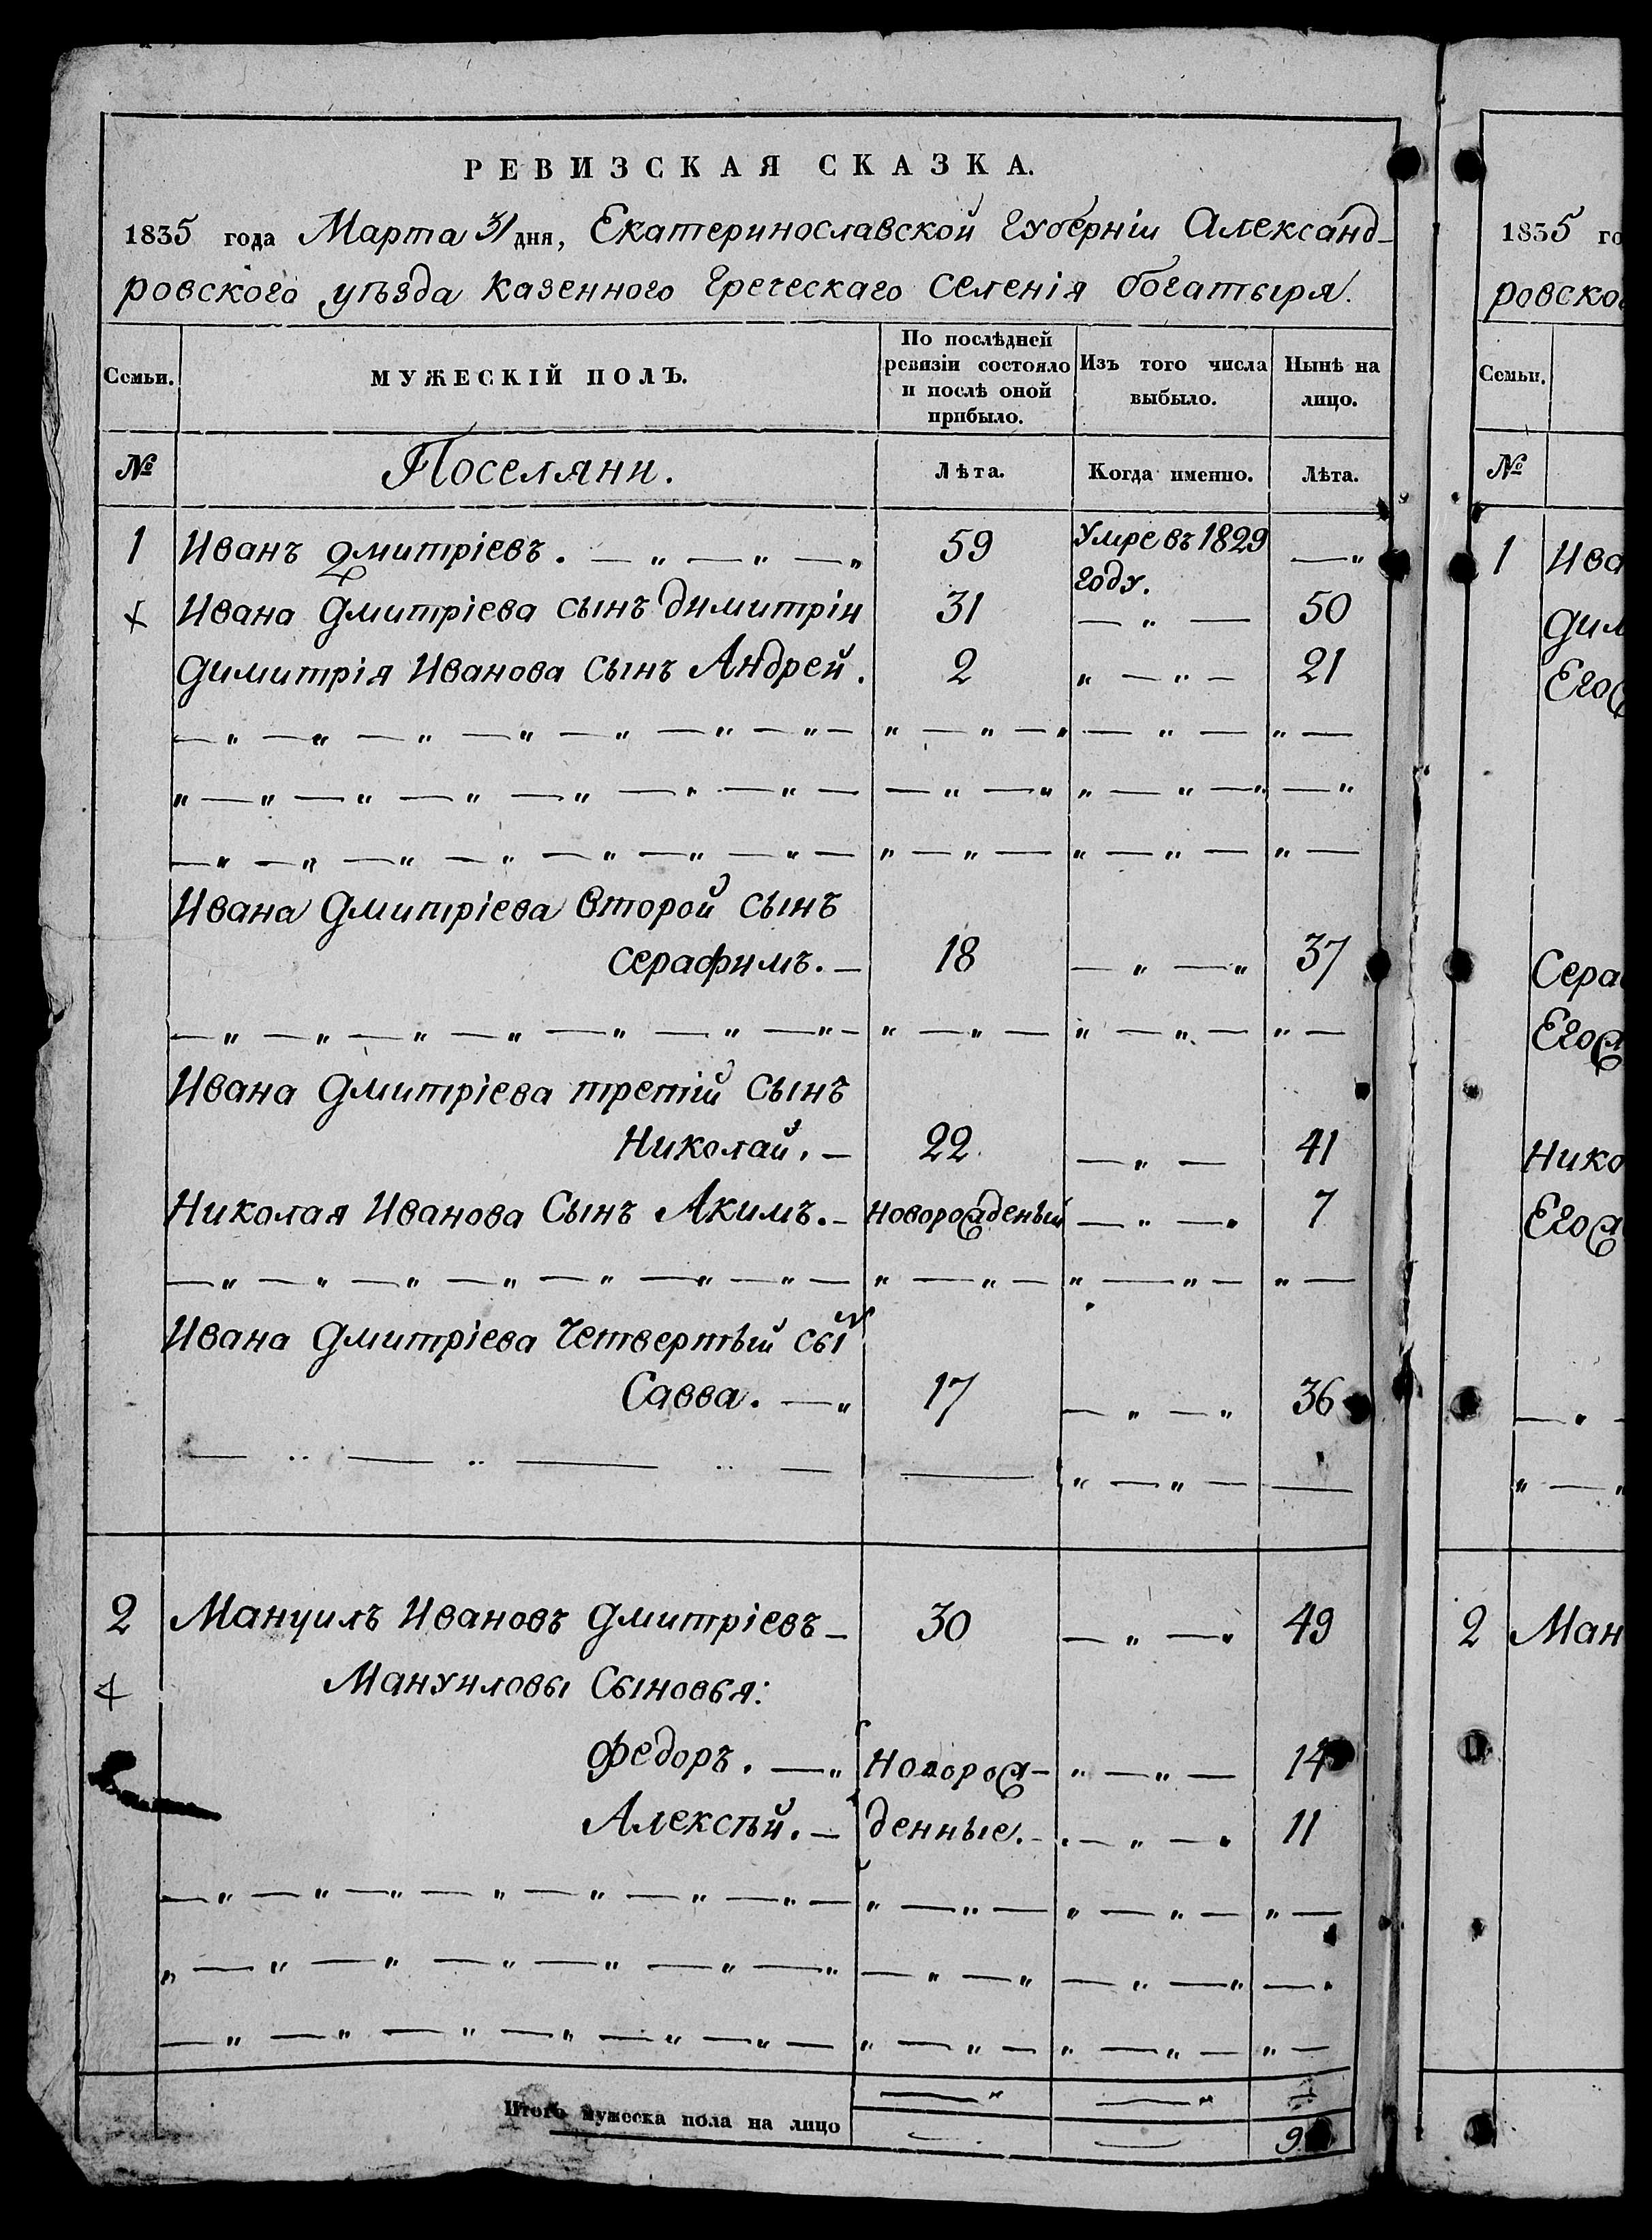 РЕВИЗСКАЯ СКАЗКА.
1835 года Марта 31 дня, Екатеринославской Губерніи Александ-
ровского уѣзда казенного Греческаго Селенія богатыря.
Семьи. МУЖЕСКІЙ ПОЛЪ. По послѣдней ревизіи состояло и послѣ оной прибыло. Изъ того числа выбыло. Нынѣ на лицо.
№ Поселяни. Лѣта. Когда именно. Лѣта.
1 Иванъ Дмитріевъ. 59 Умре въ 1829 году.
Ивана Дмитріева сынъ димитріи 31 50
Димитрія Иванова сынъ Андрей. 2 21
Ивана Дмитріева второй сынъ
серафимъ. 18 37
Ивана Дмитріева третій сынъ
Николай. 22 41
Николая Иванова Сынъ Акимъ. Новорожденый 7
Ивана Дмитріева Четвертый сын
Савва. 17 36
2 Мануилъ Ивановъ Дмитріевъ 30 49
Мануиловы Сыновья:
Федоръ. Новорож- 14
Алексѣй. денные. 11
Итого мужеска пола на лицо 9
1835 го
ровско
Семьи.
№
1 Ива
Дим
Его ж
Сера
Его ж
Нико
Его ж
2 Ман